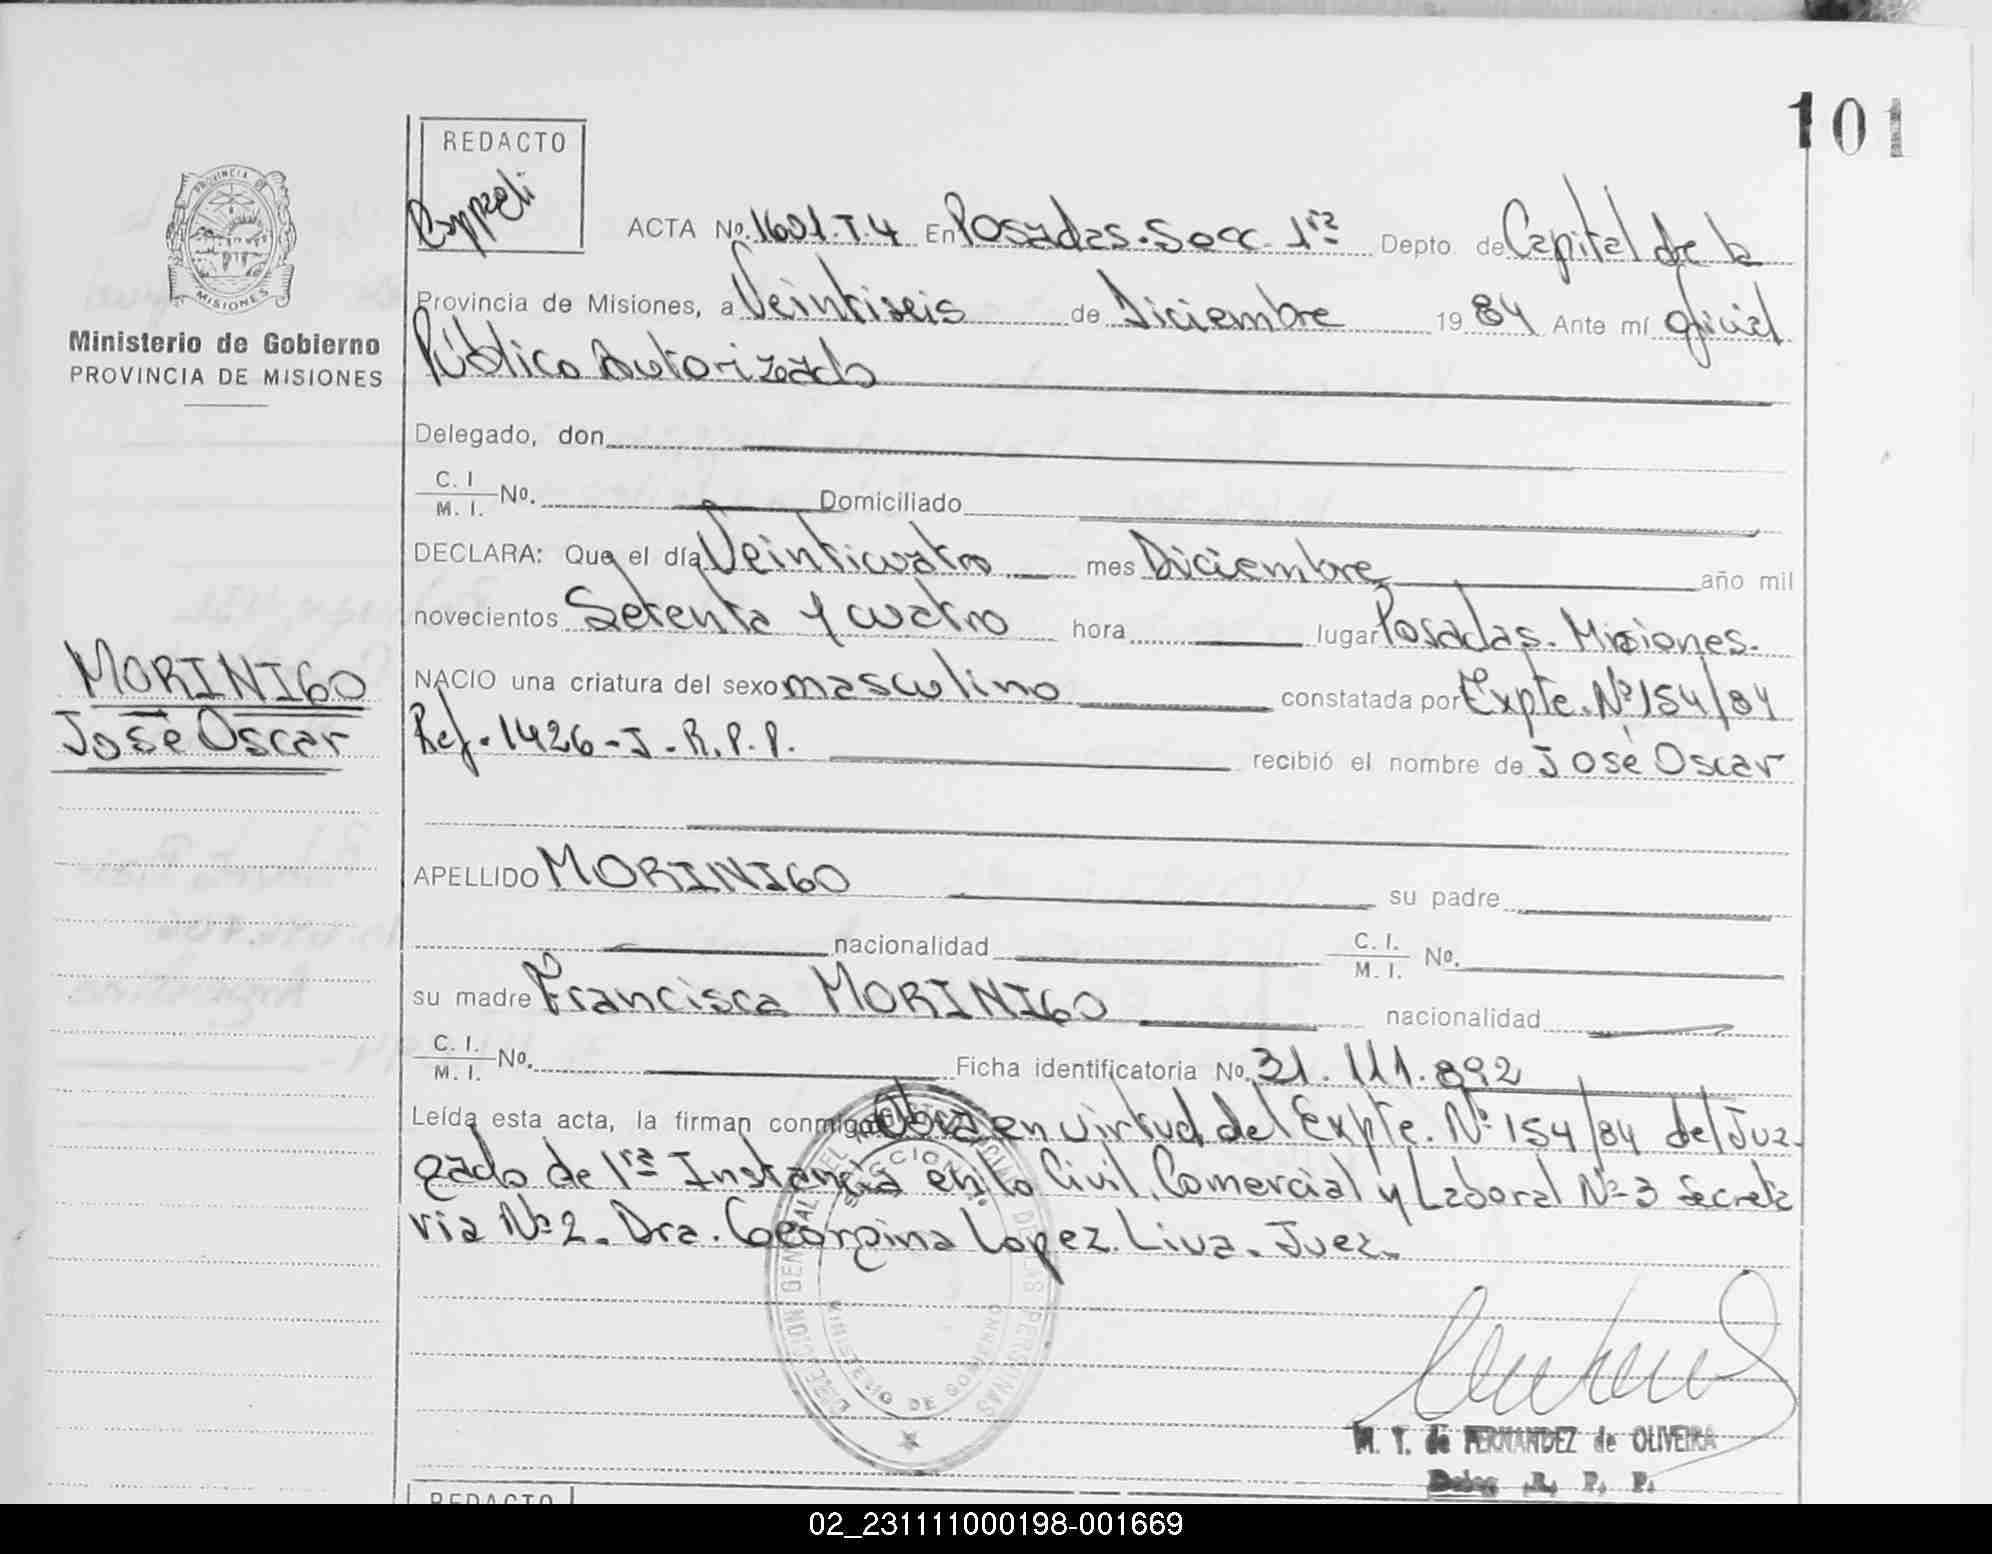 101
REDACTO
PROVINCIA DE
MISIONES
Ministerio de Gobierno
PROVINCIA DE MISIONES
ACTA Nº. 1601.T.4 En Posadas. Secc. 1ra Depto. de Capital de la
Provincia de Misiones, a Veintiseis de Diciembre 1984 Ante mí oficial
Público Autorizado
Delegado, don
C. I
M. I. Nº. Domiciliado
DECLARA: Que el día Veinticuatro mes Diciembre año mil
novecientos Setenta y cuatro hora lugar Posadas. Misiones.
MORINIGO
José Oscar
NACIO una criatura del sexo masculino constatada por Expte. Nº 154/84
Ref. 1426-J.R.P.P. recibió el nombre de José Oscar
APELLIDO MORINIGO su padre
nacionalidad C. I.
M. I. Nº.
su madre Francisca MORINIGO nacionalidad
C. I.
M. I. Nº. Ficha identificatoria Nº. 31.111.892
Leída esta acta, la firman conmigo Obra en virtud del Expte. Nº 154/84 del Juz-
gado de 1ra Instancia en lo Civil, Comercial y Laboral Nº 3 Secreta
ria Nº 2. Dra. Georgina Lopez Liva. Juez.
MINISTERIO DE GOBIERNO
M. T. de FERNANDEZ de OLIVEIRA
Deleg. R. P. P.
REDACTO
02_231111000198-001669